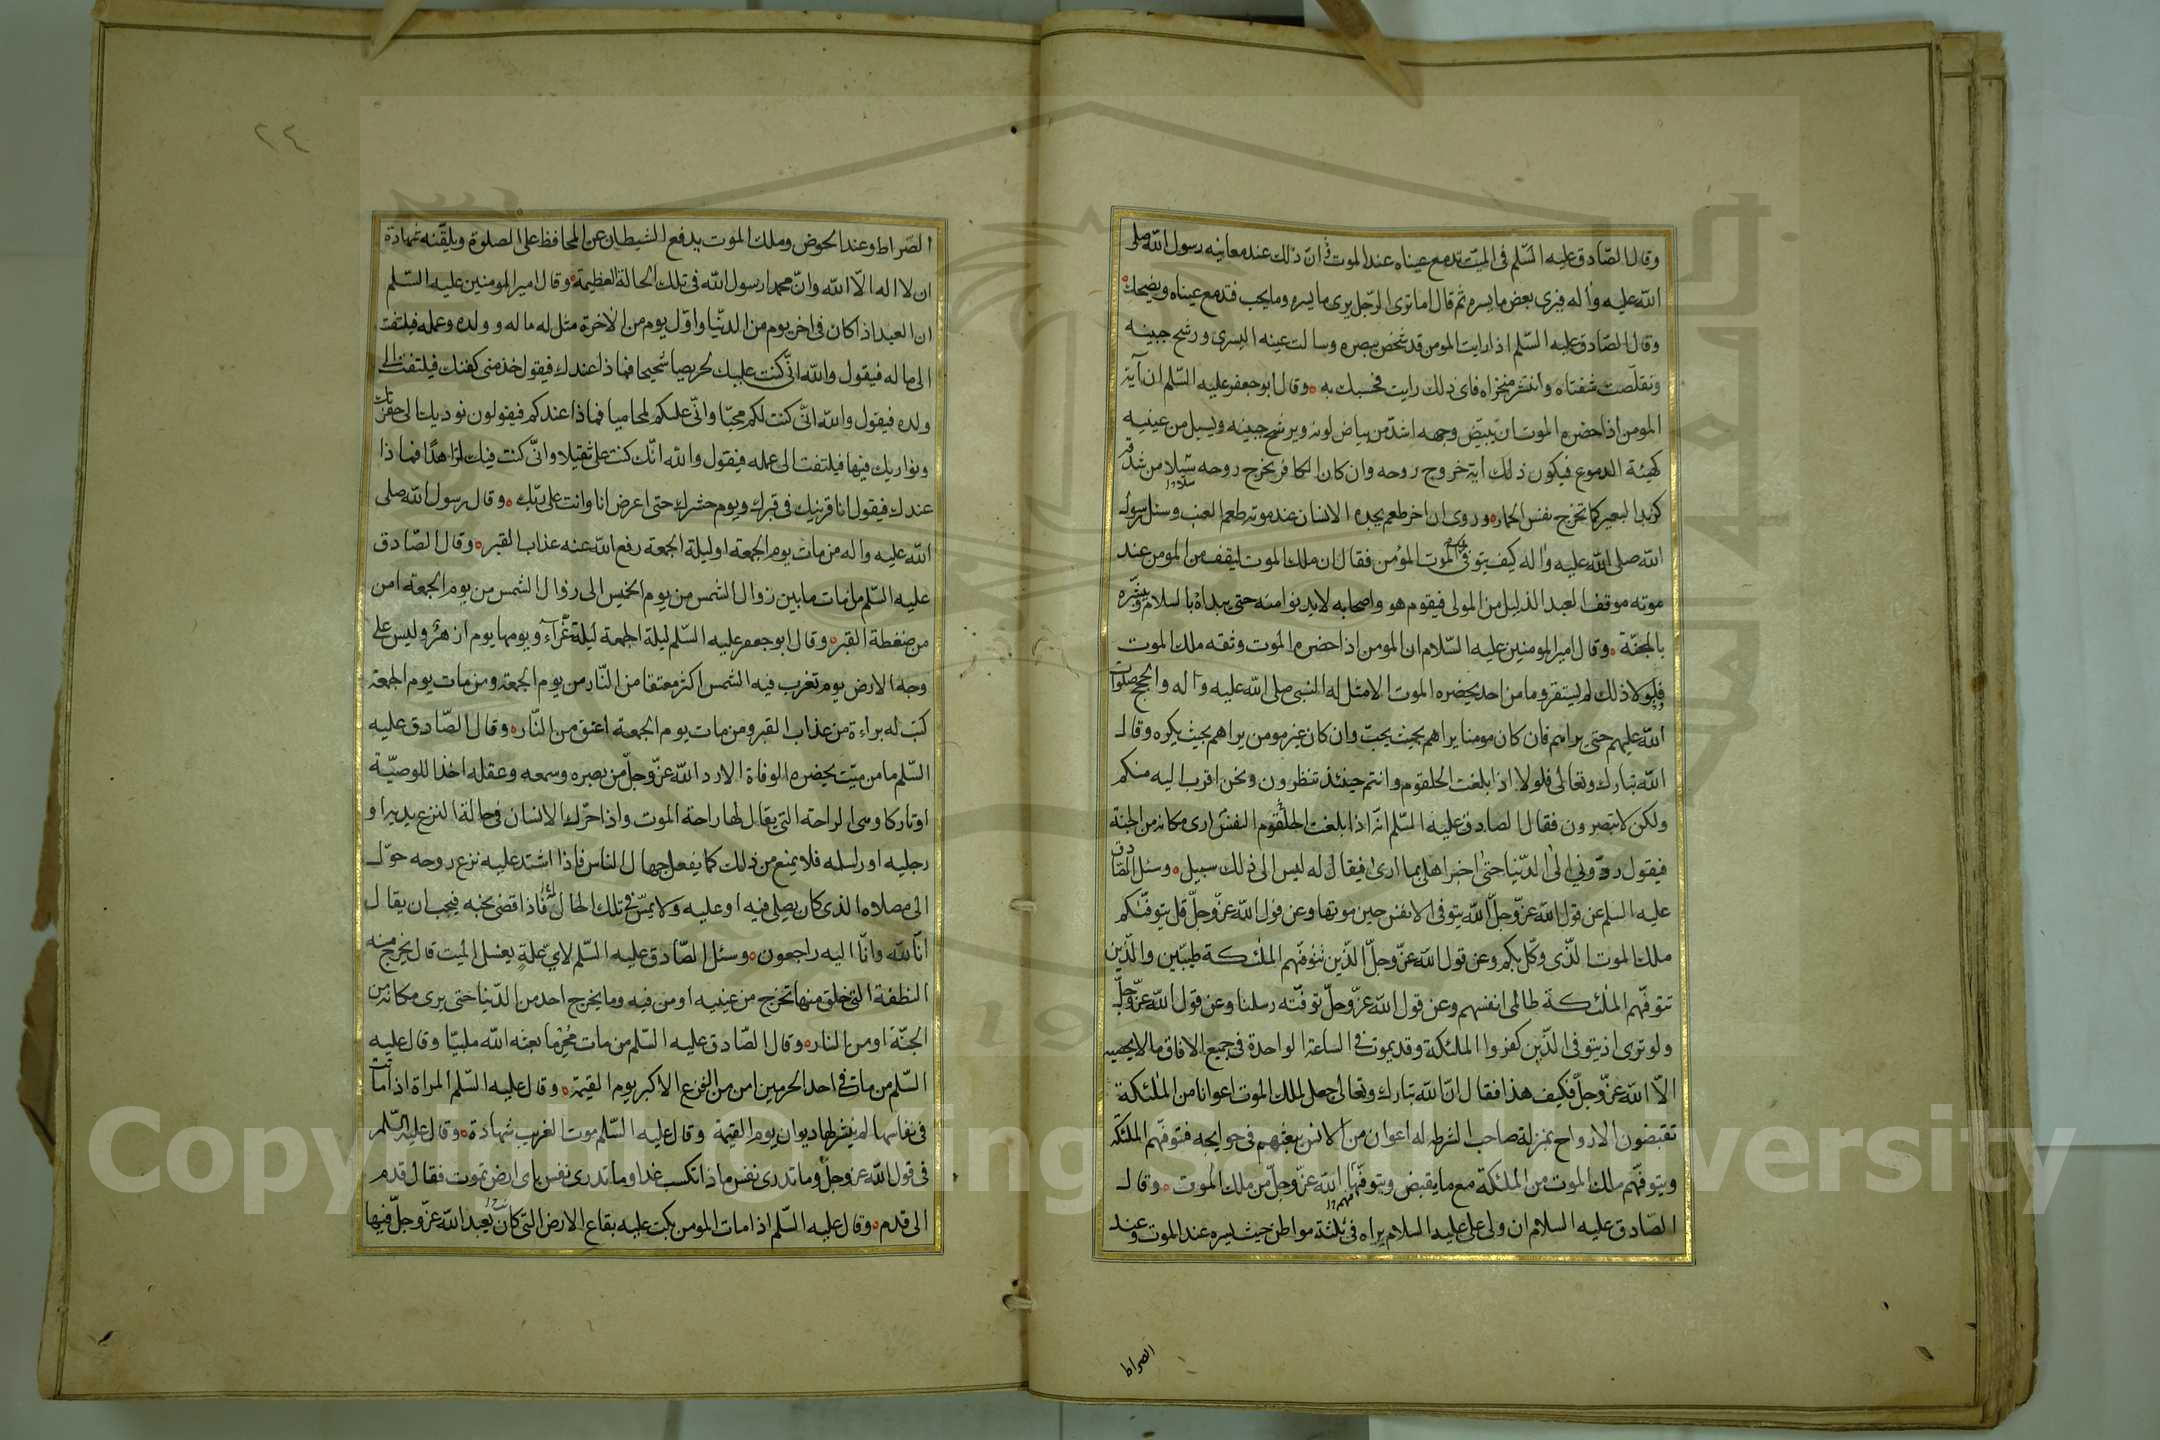 وقال الصّادق عليه السّلم فى الميّت تدمع عيناه عند الموت انّ ذلك عند معاينه رسول الله صلى
الله عليه واله فيرى بعض ما يسره ثم قال اما ترى الرّجل يرى ما يسره وما يحب فتدمع عيناه ويضحك
وقال الصّادق عليه السّلم اذا رايت المومن قد شخص ببصره وسالت عينه اليسرى ورشح جبينه
وتقلّصت شفتاه وانتشر منخراه فاى ذلك رايت فحسبك به وقال ابو جعفر عليه السّلم ان آية
المومن اذا حضره الموت ان يبيّض وجهه اشدّ من بياض لونه ويرشح جبينه ويسيل من عينيه
كهيئة الدموع فيكون ذلك اية خروج روحه وان كان الكافر يخرج روحه سلا من شدقه
كزبد البعير كما تخرج نفس الحمار وروى ان اخر طعم يجده الانسان عند موته طعم العنب وسئل رسول
الله صلى الله عليه واله كيف يتوفى ملك الموت المؤمن فقال ان ملك الموت ليقف من المومن عند
موته موقف العبد الذليل من المولى فيقوم هو واصحابه لا يدنوا منه حتى يبداه بالسلام ويبشّره
بالجنّة وقال امير المومنين عليه السّلام ان المومن اذا حضره الموت وثقه ملك الموت
فلولا ذلك لم يستقر وما من احد يحضره الموت الا مثل له النبى صلى الله عليه واله والحجج صلوات
الله عليهم حتى يراهم فان كان مومنا يراهم بحيث يحبّ وان كان غير مومن يراهم بحيث يكره وقال
الله تبارك وتعالى فلولا اذا بلغت الحلقوم وانتم حينئذ تنظرون ونحن اقرب اليه منكم
ولكن لا تبصرون فقال الصادق عليه السّلم انّه اذا بلغت الحلقوم النفس ارى مكانه من الجنة
فيقول ردّونى الى الدّنيا حتى اخبر اهلى بما ارى فيقال له ليس الى ذلك سبيل وسئل الصّادق
عليه السلم عن قول الله عزّ وجلّ الله يتوفى الانفس حين موتها وعن قول الله عزّ وجلّ قل يتوفّٰكم
ملك الموت الّذى وكّل بكم وعن قول الله عزّ وجلّ الّذين تتوفّٰهم الملٰئكة طيّبين والّذين
تتوفّٰهم الملٰئكة ظالمى انفسهم وعن قول الله عزّ وجلّ توفّته رسلنا وعن قول الله عزّ وجلّ
ولو ترى اذ يتوفى الّذين كفروا الملئكة وقد يموت فى الساعة الواحدة فى جميع الافاق ما لا يحصيه
الّا الله عزّ وجلّ فكيف هذا فقال انّ الله تبارك وتعالى جعل لملك الموت اعوانا من الملٰئكة
تقبضون الارواح بمنزلة صاحب الشرطه له اعوان من الانس يبعثهم فى حوايجه فتتوفّٰهم الملٰئكة
ويتوفّٰهم ملك الموت من الملٰئكة مع ما يقبض ويتوفّٰها الله عزّ وجلّ من ملك الموت وقال
الصّادق عليه السلام ان ولى على عليه السلام يراه فى ثلثة مواطن حيث يسره عند الموت وعند
الصراط
٢٤
الصّراط وعند الحوض وملك الموت يدفع الشيطان عن المحافظ على الصلوة ويلقّنه شهادة
ان لا اله الّا الله وانّ محمدا رسول الله فى تلك الحالة العظيمة وقال امير المومنين عليه السّلم
ان العبد اذا كان فى اخر يوم من الدنّيا واوّل يوم من الاخرة مثل له ماله وولده وعمله فيلتفت
الى ماله فيقول والله انّى كنت عليك لحريصا شحيحا فماذا عندك فيقول خذ منى كفنك فيلتفت الى
ولده فيقول والله انّى كنت لكم محبّا وانّى عليكم لمحاميا فماذا عندكم فيقولون نوديك الى حفرتك
ونواريك فيها فيلتفت الى عمله فيقول والله انّك كنت على ثقيلا وانّى كنت فيك لزاهدًا فماذا
عندك فيقول انا قرينك فى قبرك ويوم حشرك حتى اعرض انا وانت على ربّك وقال رسول الله صلى
الله عليه واله من مات يوم الجمعة او ليلة الجمعة رفع الله عنه عذاب القبر وقال الصّادق
عليه السّلم من مات ما بين زوال الشمس من يوم الخميس الى زوال الشمس من يوم الجمعة امن
من ضغطة القبر وقال ابو جعفر عليه السّلم ليلة الجمعة ليلة غرّآء ويومها يوم ازهر وليس على
وجه الارض يوم تغرب فيه الشمس اكثر معتقا من النّار من يوم الجمعة ومن مات يوم الجمعة
كتب له براءة من عذاب القبر ومن مات يوم الجمعة اعتق من النّار وقال الصّادق عليه
السّلم ما من ميّت يحضره الوفاة الا رد الله عزّ وجلّ من بصره وسمعه وعقله اخذا للوصيّة
او تاركا وهى الراحة التى يقال لها راحة الموت واذا حرّك الانسان فى حالة النزع يديه او
رجليه او راسه فلا يمنع من ذلك كما يفعل جهال الناس فاذا اشتد عليه نزع روحه حوّل
الى مصلاه الذى كان يصلى فيه او عليه ولا يمسّ فى تلك الحال فاذا قضى نحبه فيجب ان يقال
انّا لله وانّا اليه راجعون وسئل الصّادق عليه السّلم لاى علة يغسل الميت قال يخرج منه
النطفة التى خلق منها تخرج من عينيه او من فيه وما يخرج احد من الدّنيا حتى يرى مكانه من
الجنّة او من النار وقال الصّادق عليه السّلم من مات محُرْما بعثه الله ملبيّا وقال عليه
السّلم من مات فى احد الحرمين امن من الفزع الاكبر يوم القيمة وقال عليه السّلم المراة اذا ماتت
فى نفاسها لم ينشر لها ديوان يوم القيمة وقال عليه السّلم موت الغريب شهادة وقال عليه السّلم
فى قول الله عزّ وجلّ وما تدرى نفس ماذا تكسب غدا وما تدرى نفس باى ارض تموت فقال قدم
الى قدم وقال عليه السّلم اذا مات المومن بكت عليه بقاع الارض التى كان يعبد الله عزّ وجلّ فيها
Copyright © King Saud University